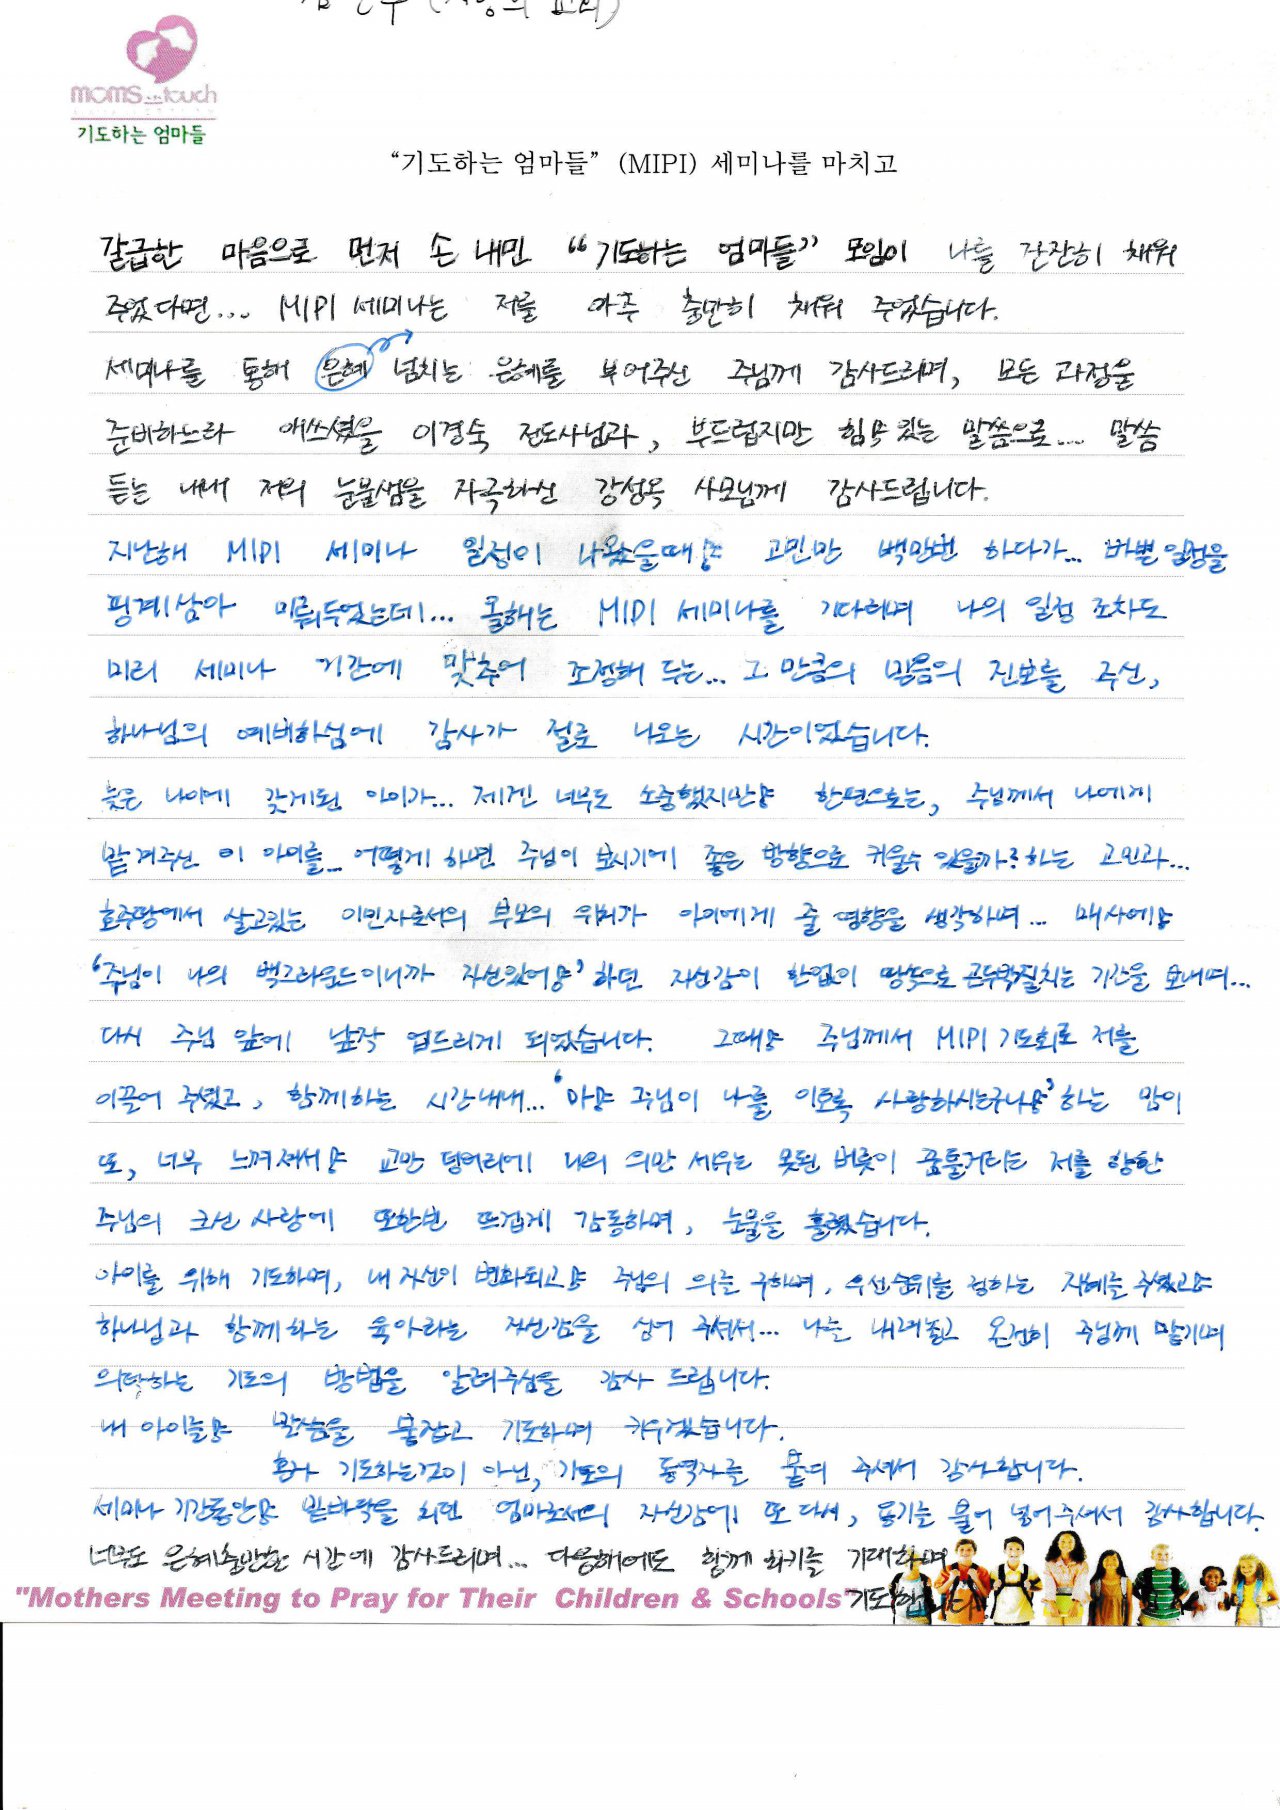 moms touch
기도하는 엄마들
“기도하는 엄마들” (MIPI) 세미나를 마치고
갈급한 마음으로 먼저 손 내민 “기도하는 엄마들” 모임이 나를 잔잔히 채워
주었다면... MIPI 세미나는 저를 아주 충만히 채워 주었습니다.
세미나를 통해 은혜 넘치는 은혜를 부어주신 주님께 감사드리며, 모든 과정을
준비하느라 애쓰셨을 이경숙 전도사님과, 부드럽지만 힘있는 말씀으로... 말씀
듣는 내내 저의 눈물샘을 자극하신 강성옥 사모님께 감사드립니다.
지난해 MIPI 세미나 일정이 나왔을때야 고민만 백만번 하다가... 바쁜 일정을
핑계삼아 미뤄두었는데... 올해는 MIPI 세미나를 기다리며 나의 일정 조차도
미리 세미나 기간에 맞추어 조정해 두는... 그 만큼의 믿음의 진보를 주신,
하나님의 예비하심에 감사가 절로 나오는 시간이었습니다.
늦은 나이에 갖게된 아이가... 제겐 너무도 소중했지만 한편으로는, 주님께서 나에게
맡겨주신 이 아이를... 어떻게 하면 주님이 보시기에 좋은 방향으로 키울수 있을까? 하는 고민과...
호주땅에서 살고있는 이민자로서의 부모의 위치가 아이에게 줄 영향을 생각하며... 매사에
‘주님이 나의 백그라운드이니까 자신있어’ 하던 자신감이 한없이 땅속으로 곤두박질치는 기간을 보내며...
다시 주님 앞에 납작 엎드리게 되었습니다. 그때 주님께서 MIPI 기도회로 저를
이끌어 주셨고, 함께하는 시간내내... ‘아 주님이 나를 이토록 사랑하시는구나’ 하는 맘이
또, 너무 느껴져서 교만 덩어리에 나의 의만 세우는 못된 버릇이 꿈틀거리는 저를 향한
주님의 크신 사랑에 또한번 뜨겁게 감동하며, 눈물을 흘렸습니다.
아이를 위해 기도하며, 내 자신이 변화되고 주님의 의를 구하며, 우선순위를 정하는 지혜를 주셨고
하나님과 함께하는 육아라는 자신감을 심어 주셔서... 나를 내려놓고 온전히 주님께 맡기며
의탁하는 기도의 방법을 알려주심을 감사 드립니다.
내 아이를 말씀을 붙잡고 기도하며 키우겠습니다.
혼자 기도하는것이 아닌, 기도의 동역자를 붙여 주셔서 감사합니다.
세미나 기간동안 밑바닥을 치던 엄마로서의 자신감에 또 다시, 용기를 불어 넣어주셔서 감사합니다.
너무도 은혜충만한 시간에 감사드리며... 다음해에도 함께 하기를 기대하며
"Mothers Meeting to Pray for Their Children & Schools" 기도합니다